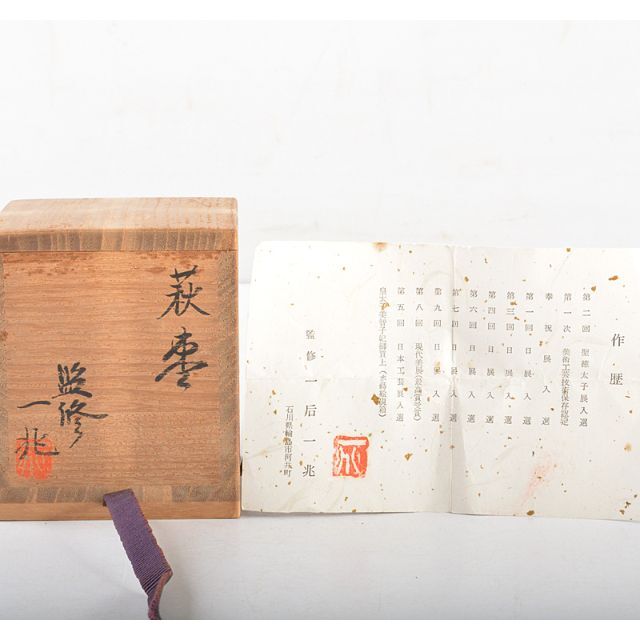 萩棗
監修
一兆
作歴
第二回 聖徳太子展入選
第一次 美術工芸技術保存認定
奉祝展入選
第一回日展入選
第三回日展入選
第四回日展入選
第六回日展入選
第七回日展入選
第九回日展入選
第八回 現代美展
第五回 日本工芸展入選
監修 一后一兆
石川県輪島市河井町